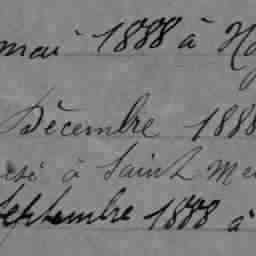 mai 1888 à
Décembre 1888
à Saint
Septembre 1888 à